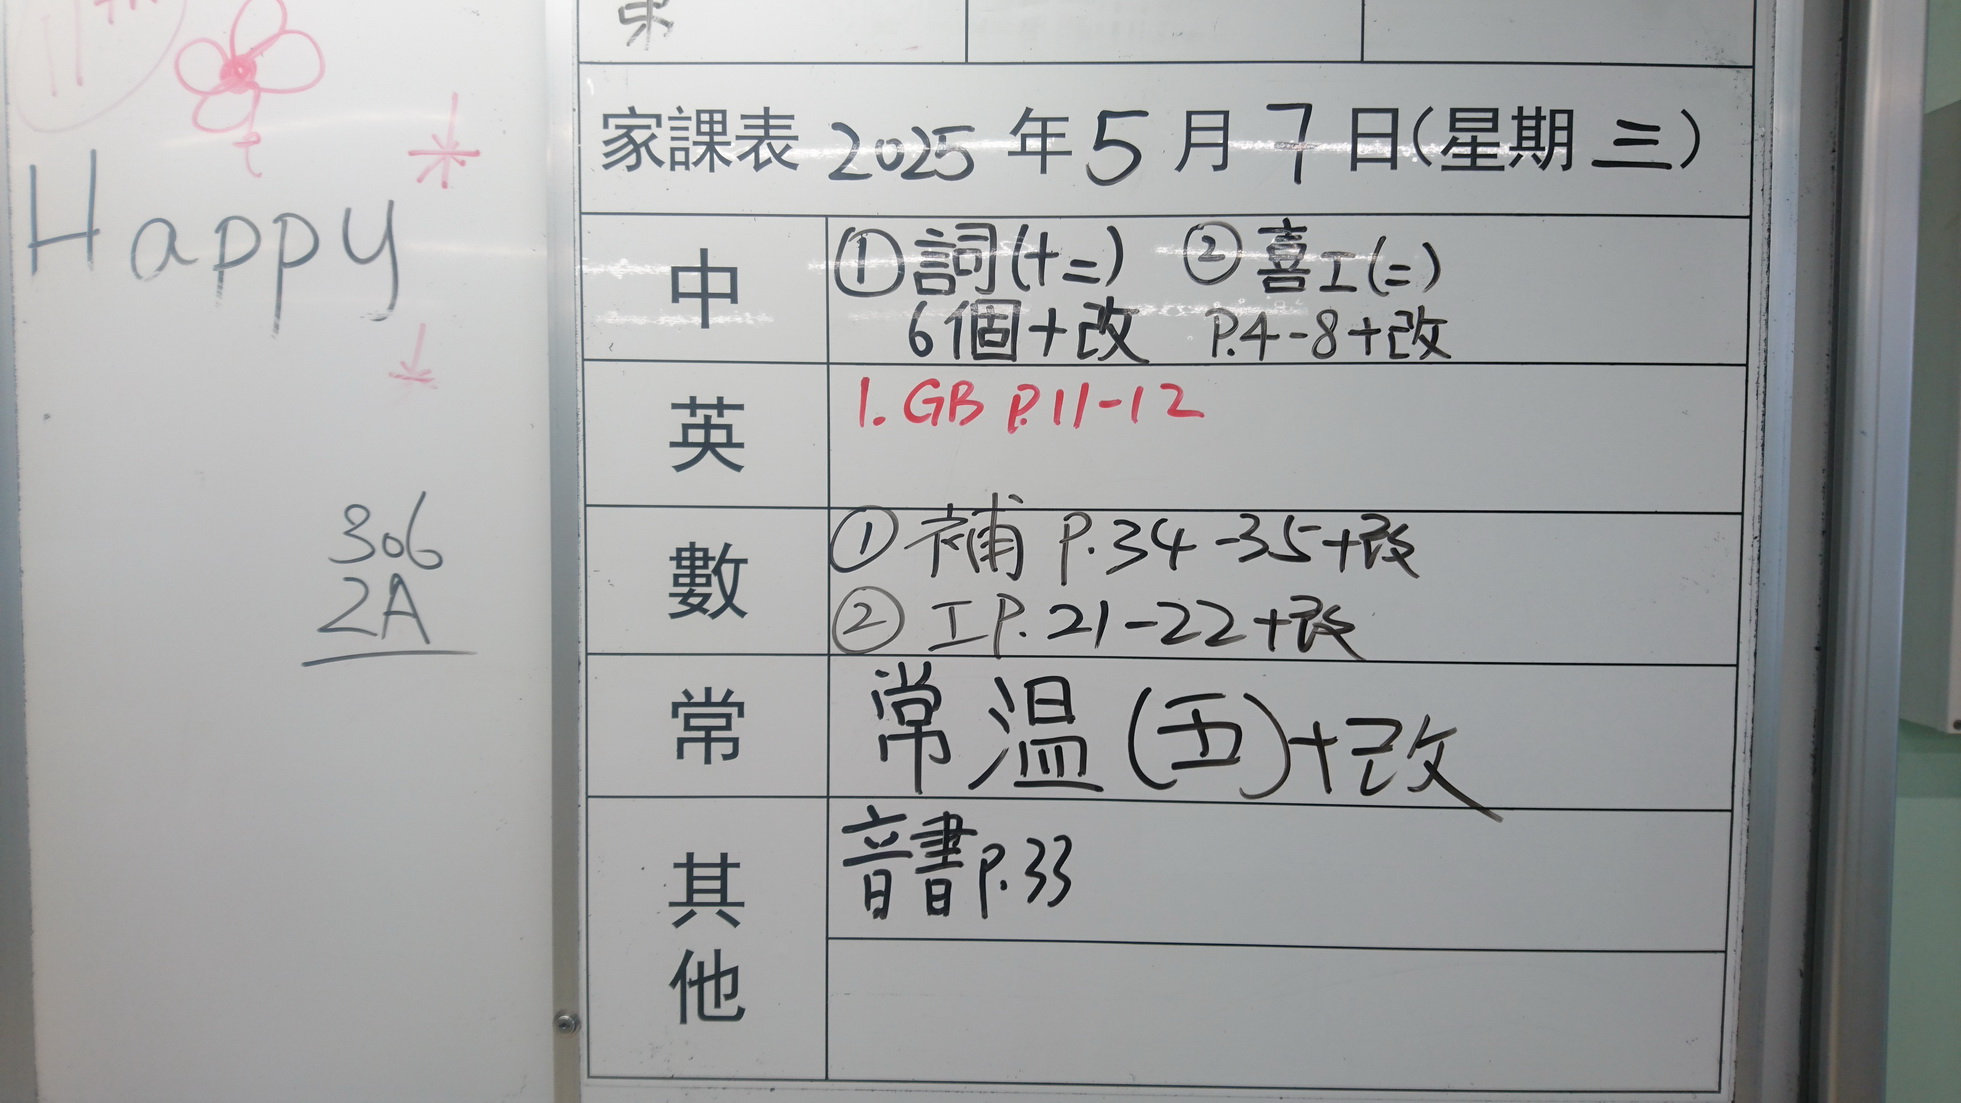 Happy
306
2A
家課表 2025 年 5 月 7 日(星期 三)
中
①詞(十二) ②喜工(二)
6個+改 P.4-8+改
英
1. GB P.11-12
數
① 補 P.34-35+改
② 工P.21-22+改
常
常溫(五)+改
其他
音書P.33